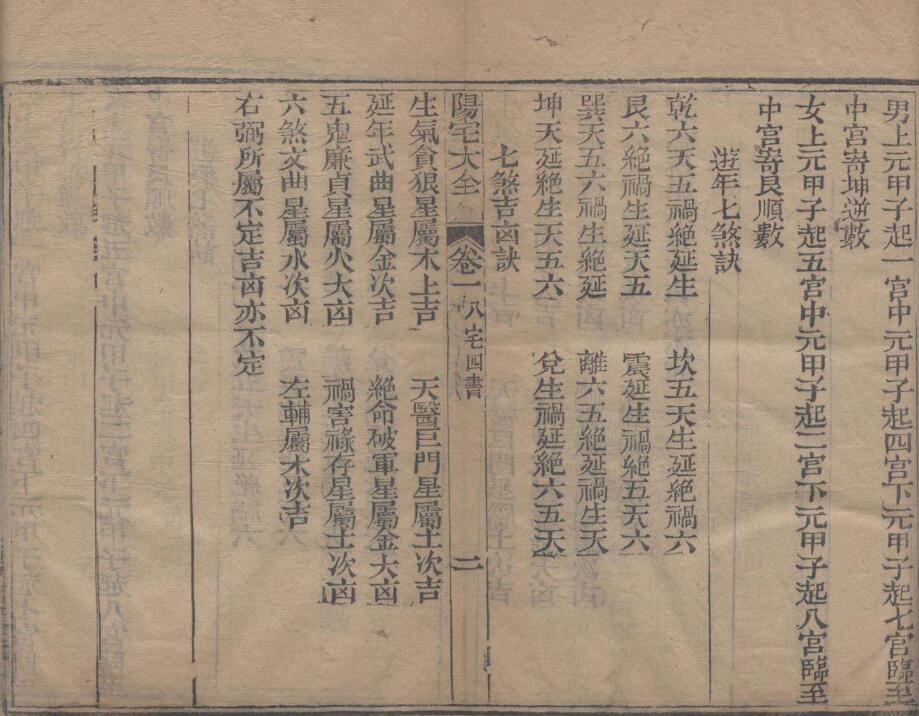 男上元甲子起一宫中元甲子起四宫下元甲子起七宫臨至
中宫寄坤逆數
女上元甲子起五宫中元甲子起二宫下元甲子起八宫臨至
中宫寄艮順數
遊年七煞訣
乾六天五禍絶延生　坎五天生延絶禍六
艮六絶禍生延天五　震延生禍絶五天六
巽天五六禍生絶延　離六五絶延禍生天
坤天延絶生天五六　兌生禍延絶六五天
七煞吉凶訣
陽宅大全　卷一　八宅四書　二
生氣貪狼星屬木上吉　天醫巨門星屬土次吉
延年武曲星屬金次吉　絶命破軍星屬金大凶
五鬼廉貞星屬火大凶　禍害祿存星屬土次凶
六煞文曲星屬水次凶　左輔屬木次吉
右弼所屬不定吉凶亦不定